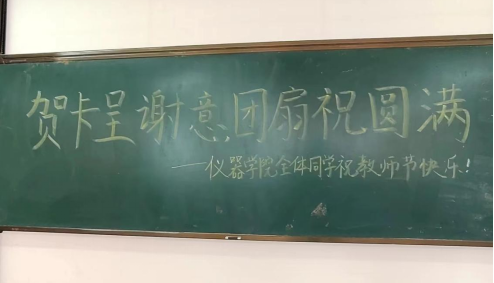 贺卡呈谢意团扇祝圆满
——仪器学院全体同学祝教师节快乐!